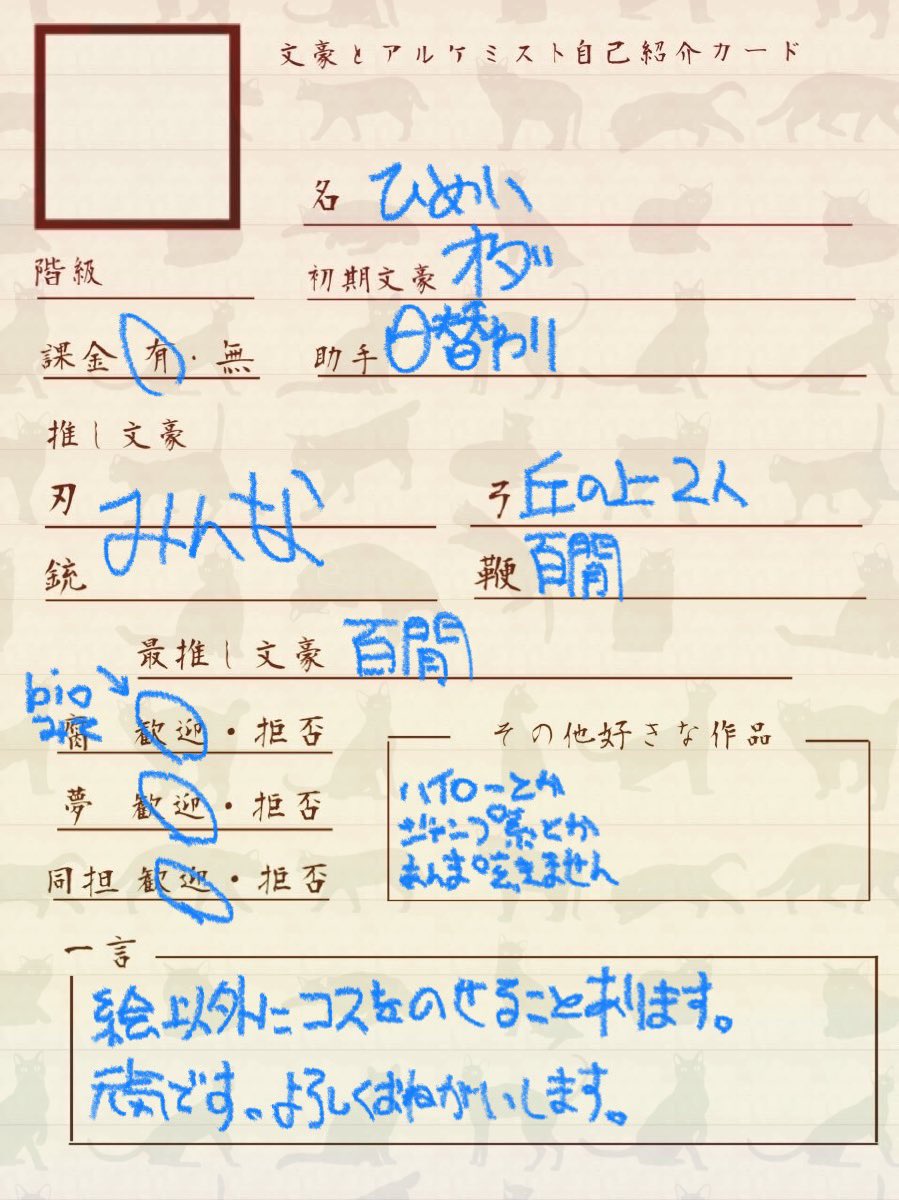 文豪とアルケミスト自己紹介カード
名 ひめい
階級
初期文豪 オダ
課金 有・無
助手 日替わり
推し文豪
刃 みんな
弓 丘の上2人
銃
鞭 百閒
最推し文豪 百閒
bio
腐 歓迎・拒否
夢 歓迎・拒否
同担 歓迎・拒否
その他好きな作品
ハイローとか
ジャンプ系とか
あんま呟きません
一言
絵以外にコス垢のせること有ります。
元気です。よろしくおねがいします。